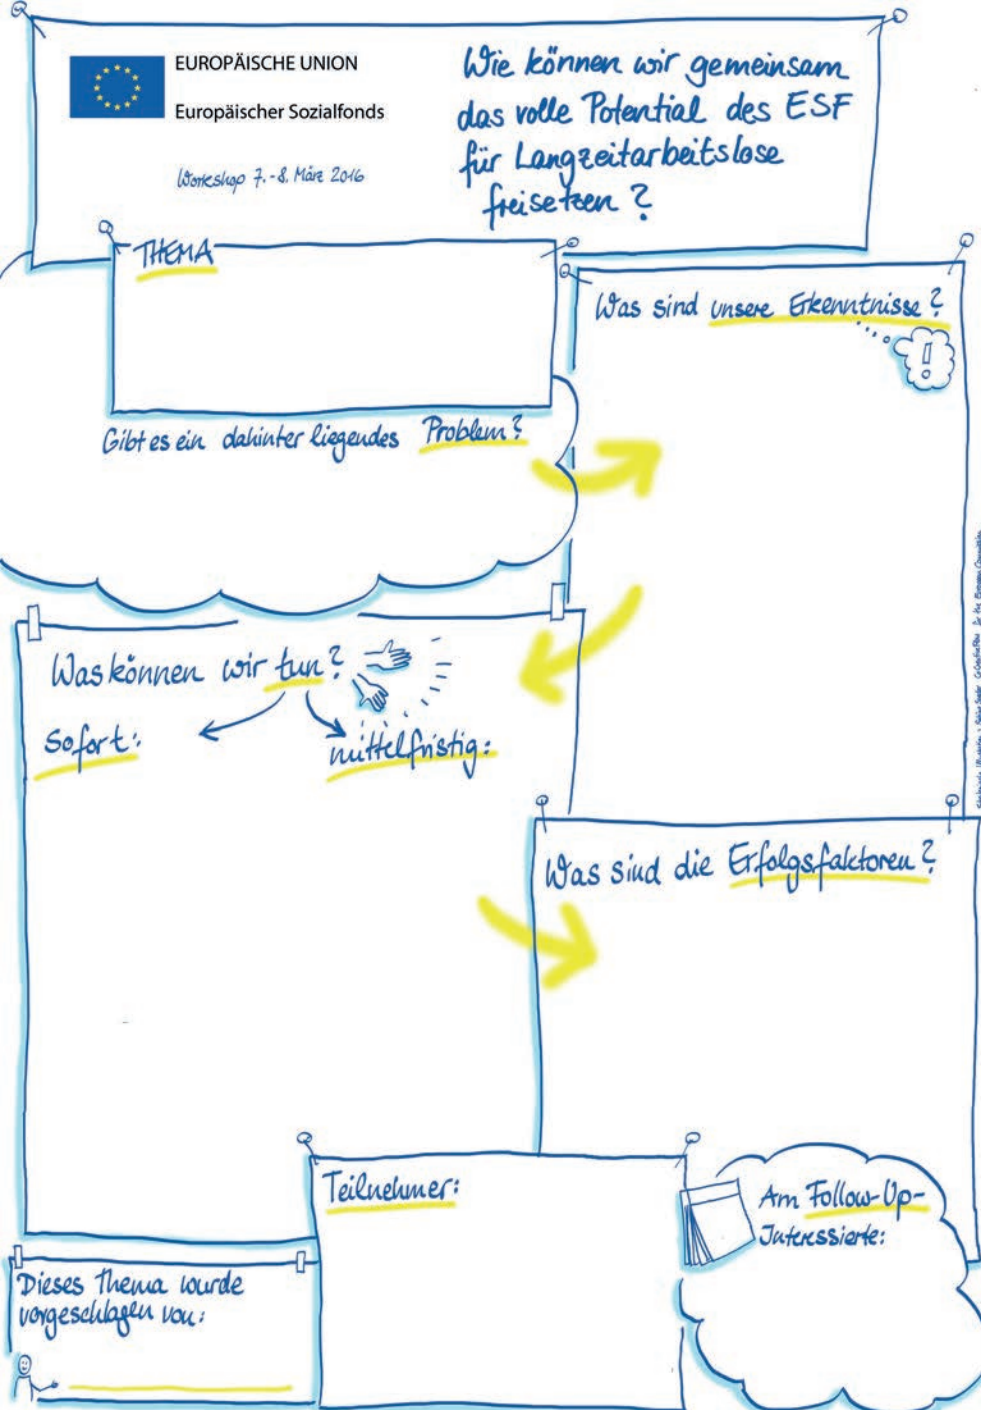 EUROPÄISCHE UNION
Europäischer Sozialfonds
Workshop 7.-8. März 2016
Wie können wir gemeinsam
das volle Potential des ESF
für Langzeitarbeitslose
freisetzen?
THEMA
Gibt es ein dahinter liegendes Problem?
Was sind unsere Erkenntnisse?
!
Was können wir tun?
Sofort:
mittelfristig:
Was sind die Erfolgsfaktoren?
Teilnehmer:
Am Follow-Up-
Interessierte:
Dieses Thema wurde
vorgeschlagen von:
for the European Commission